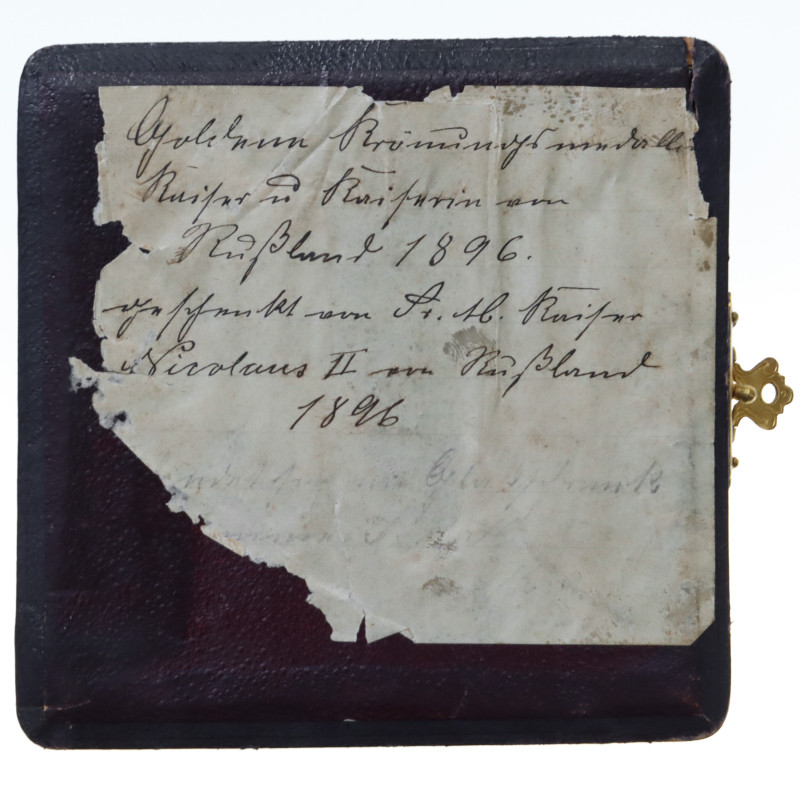 Goldene Krönungsmedaille
Kaiser u Kaiserin von
Rußland 1896.
geschenkt von Sr. M. Kaiser
Nicolaus II von Rußland
1896